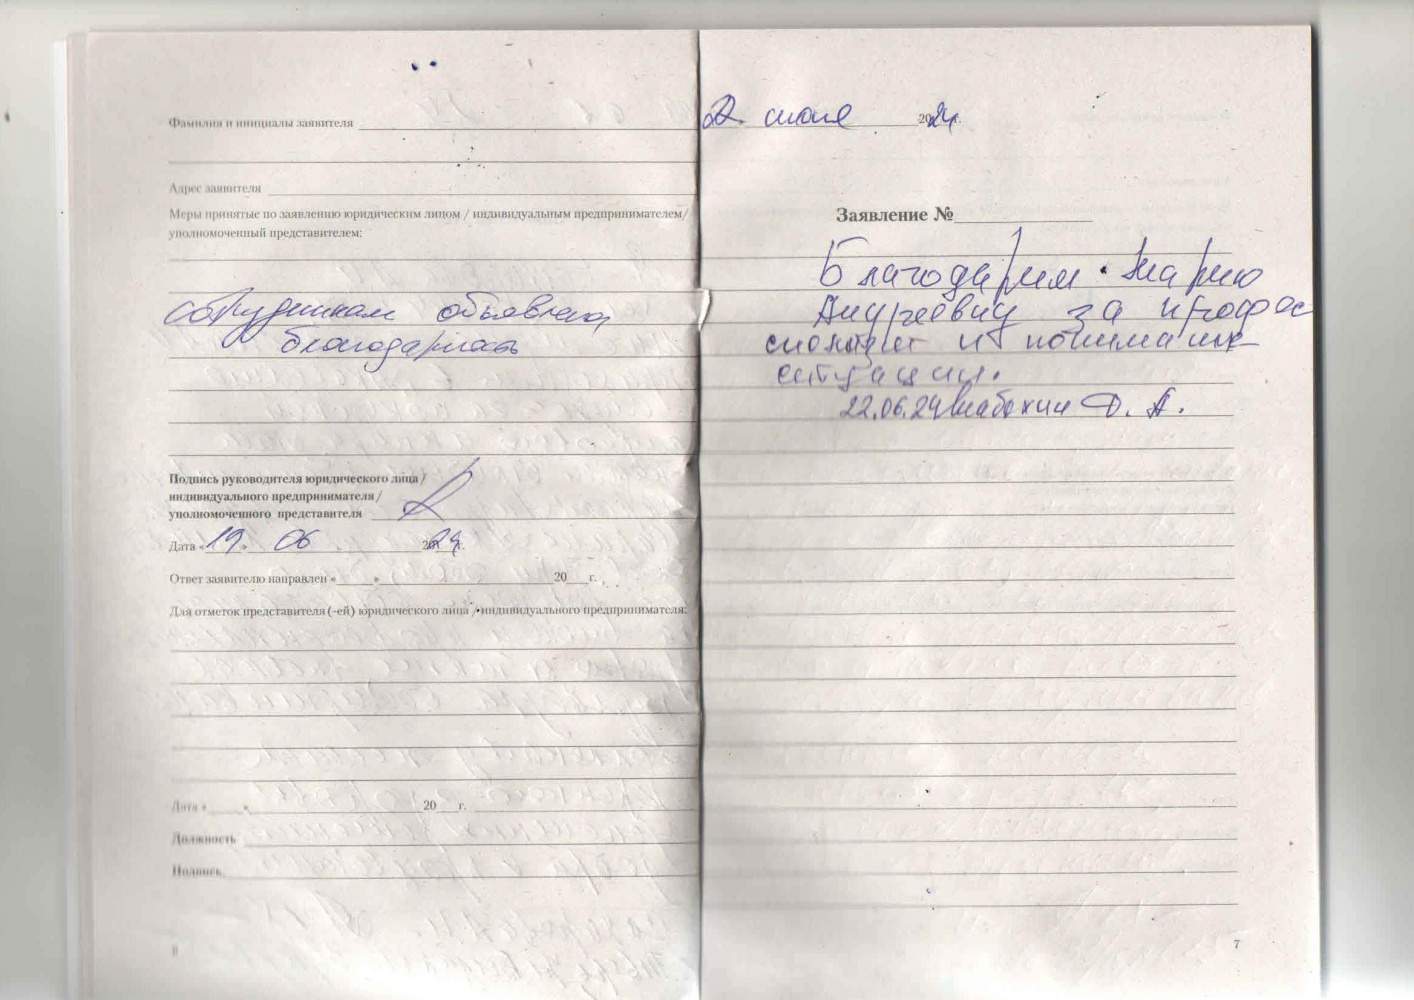 Фамилия и инициалы заявителя
Адрес заявителя
Меры принятые по заявлению юридическим лицом / индивидуальным предпринимателем/
уполномоченный представителем:
сотрудникам объявлена
благодарность
Подпись руководителя юридического лица /
индивидуального предпринимателя /
уполномоченного представителя
Дата «19» 06 2024г.
Ответ заявителю направлен « » 20 г.
Для отметок представителя (-ей) юридического лица / индивидуального предпринимателя:
Дата « » 20 г.
Должность
Подпись
22 июня 2024г.
Заявление №
Благодарим Марию
Андреевну за профес
и понимание
ситуации.
22.06.24 Д. А.
7